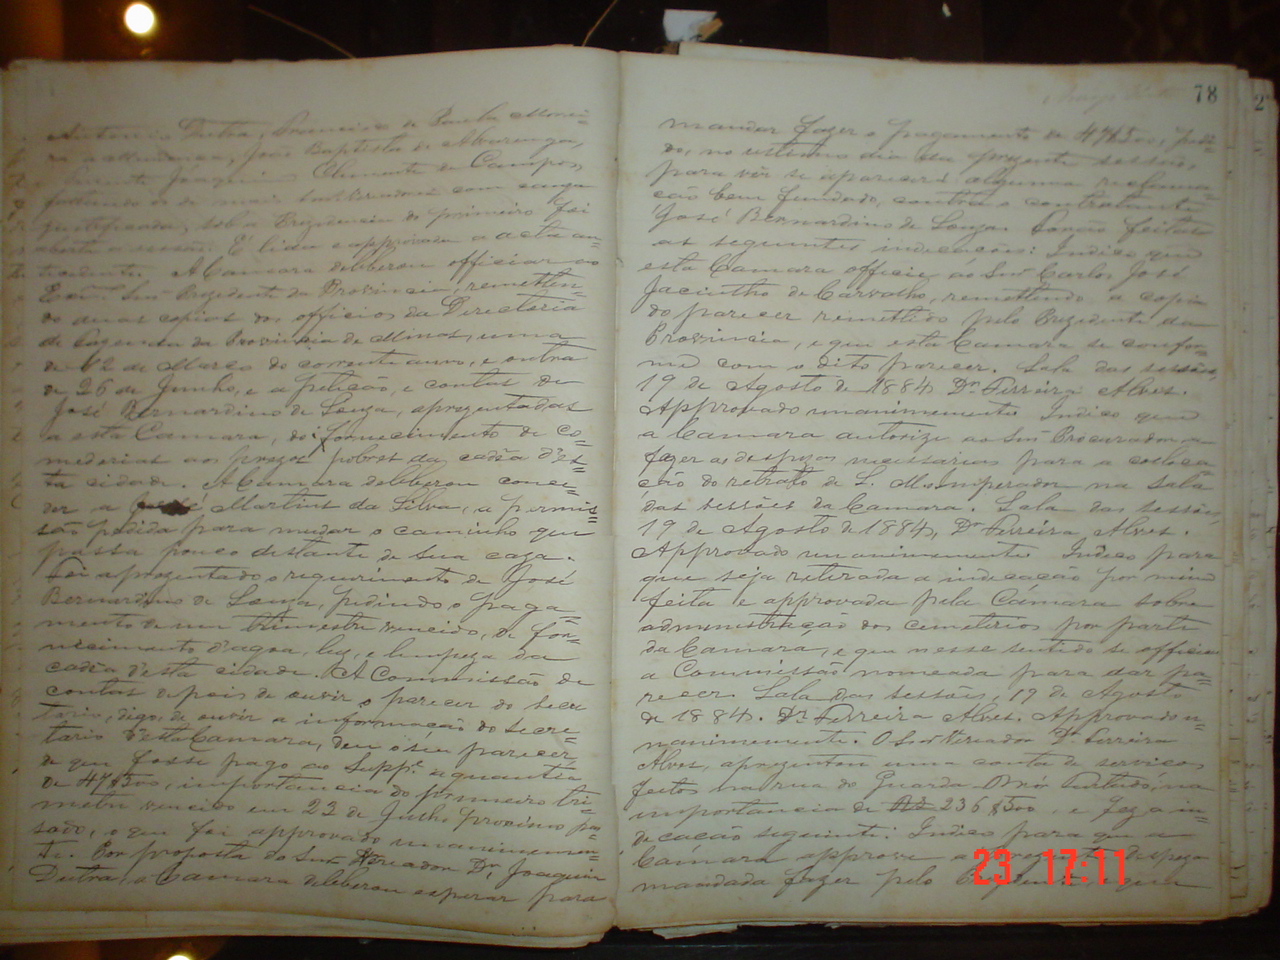 Antonio Dutra, Francisco de Paula Morei=
ra e Mendonça, João Baptista de Alvarenga,
Joaquim Clemente de Campos,
faltando os de mais Vereadores com cauza
justificada, sob a Prezidencia do primeiro foi
aberta a sessão. E' lida e approvada a acta an=
tecedente. A Camara deliberou officiar ao
Exmo Snr Prezidente da Provincia, remetten=
do duas copias dos officios da Directoria
de Fazenda da Provincia de Minas, uma
de 12 de Março do corrente anno, e outra
de 26 de Junho, e a petição, e contas de
José Bernardino de Souza, aprezentadas
a esta Camara, do fornecimento de co=
medorias aos prezos pobres da cadia d'es=
ta cidade. A Camara deliberou conce=
der a José Martins da Silva, a permis=
são pedida para mudar o caminho que
passa pouco distante de sua caza.
Foi aprezentado o requerimento de José
Bernardino de Souza, pedindo o paga=
mento de um trimestre vencido, de for=
necimento d'agoa, luz, e limpeza da
cadia d'esta cidade. A Commissão de
contas depois de ouvir o parecer do secre
tario, digo, de ouvir a informação do Secre=
tario d'esta Camara, deu o seu parecer,
de que fosse pago ao Suppe. a quantia
de 47$300, importancia do primeiro tri=
mestre vencido em 23 de Julho proximo pas=
sado, o que foi approvado unanimemen=
te. Por proposta do Snr Vereador Dr. Joaquim
Dutra, a Camara deliberou esperar para
78
mandar fazer o pagamento de 47$300, pedi=
do, no ultimo dia da prezente sessão,
para vêr se aparecerá alguma reclama=
ção bem fundada, contra o contractante
José Bernardino de Souza. Forão feitas
as seguintes indicações: Indico que
esta Camara officie ao Snr Carlos José
Jacintho de Carvalho, remettendo a copia
do parecer remettido pelo Prezidente da
Provincia, e que esta Camara se confor=
me com o dito parecer. Sala das sessões,
19 de Agosto de 1884, Dr. Ferreira Alves.
Approvado unanimemente. Indico que
a Camara autorize ao Snr Procurador a
fazer as despezas necessarias para a colloca=
ção do retrato de S. M. o Imperador na sala
das sessões da Camara. Sala das sessões,
19 de Agosto de 1884, Dr Ferreira Alves.
Approvado unanimemente. Indico para
que seja retirada a indicação por mim
feita e approvada pela Cámara sobre
administração dos cemiterios por parte
da Camara, e que nesse sentido se officie
a Commissão nomeada para dar pa=
recer. Sala das sessões, 19 de Agosto
de 1884. Dr Ferreira Alves. Approvado u=
nanimemente. O Snr Vereador Dr. Ferreira
Alves, aprezentou uma conta de serviços
feitos na rua do Guarda Mór Furtado, na
importancia de 236$300, e fez a in=
dicação seguinte: Indico para que a
Camara approve a despeza
mandada fazer pelo
23 17:11